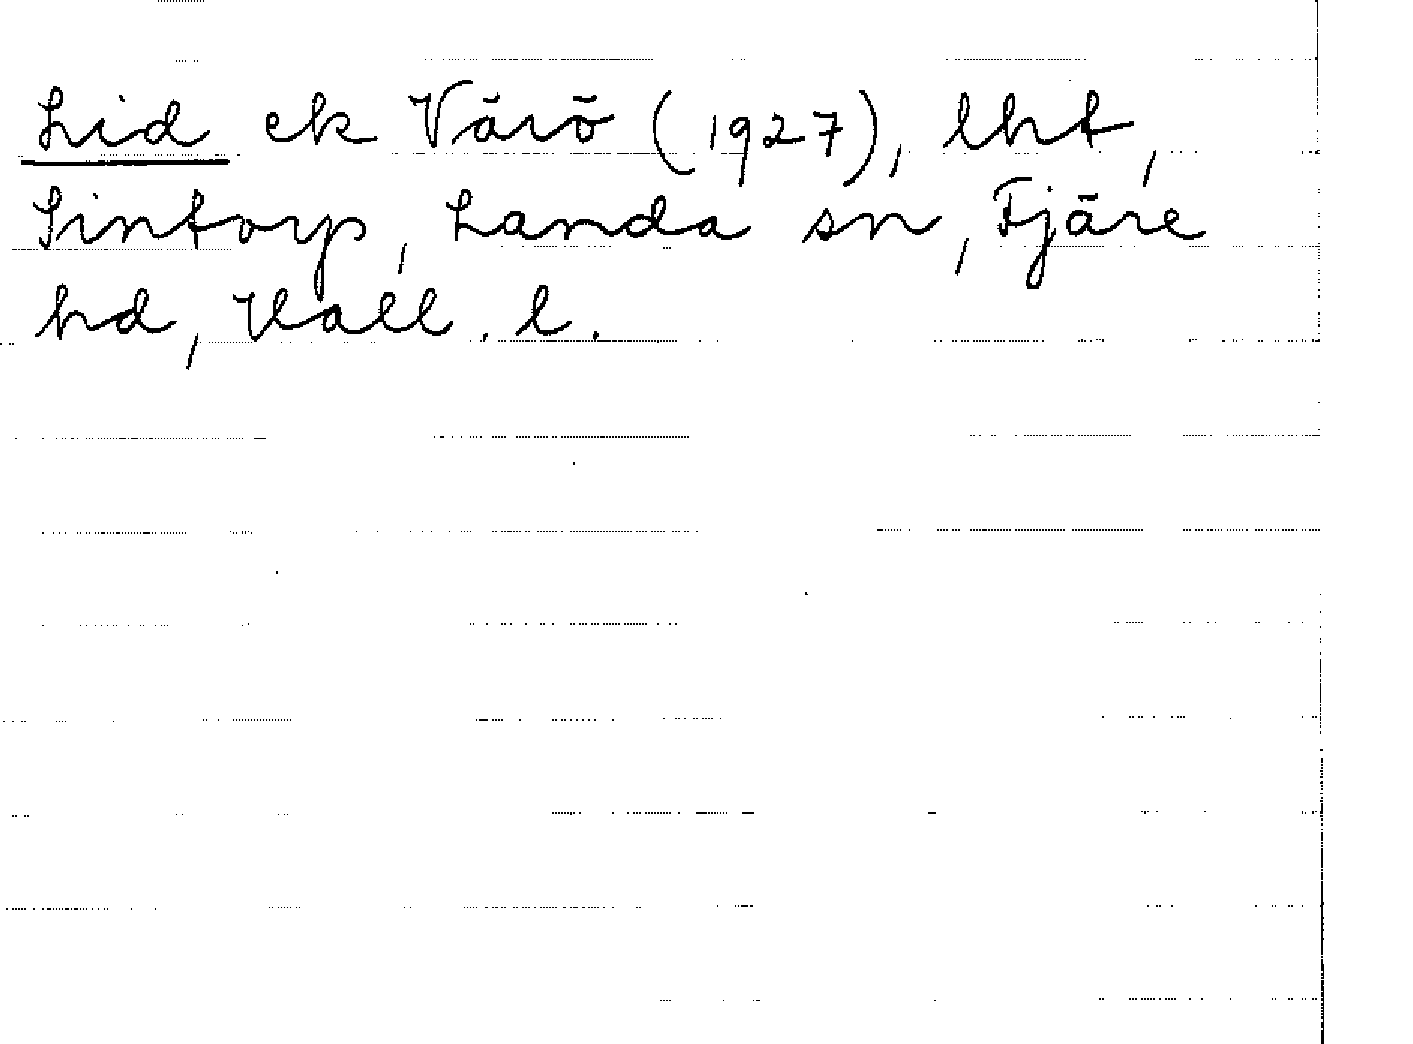 Lid ek Värö (1927), lht,
Sintorp, Landa sn, Fjäre
hd, Hall. l.